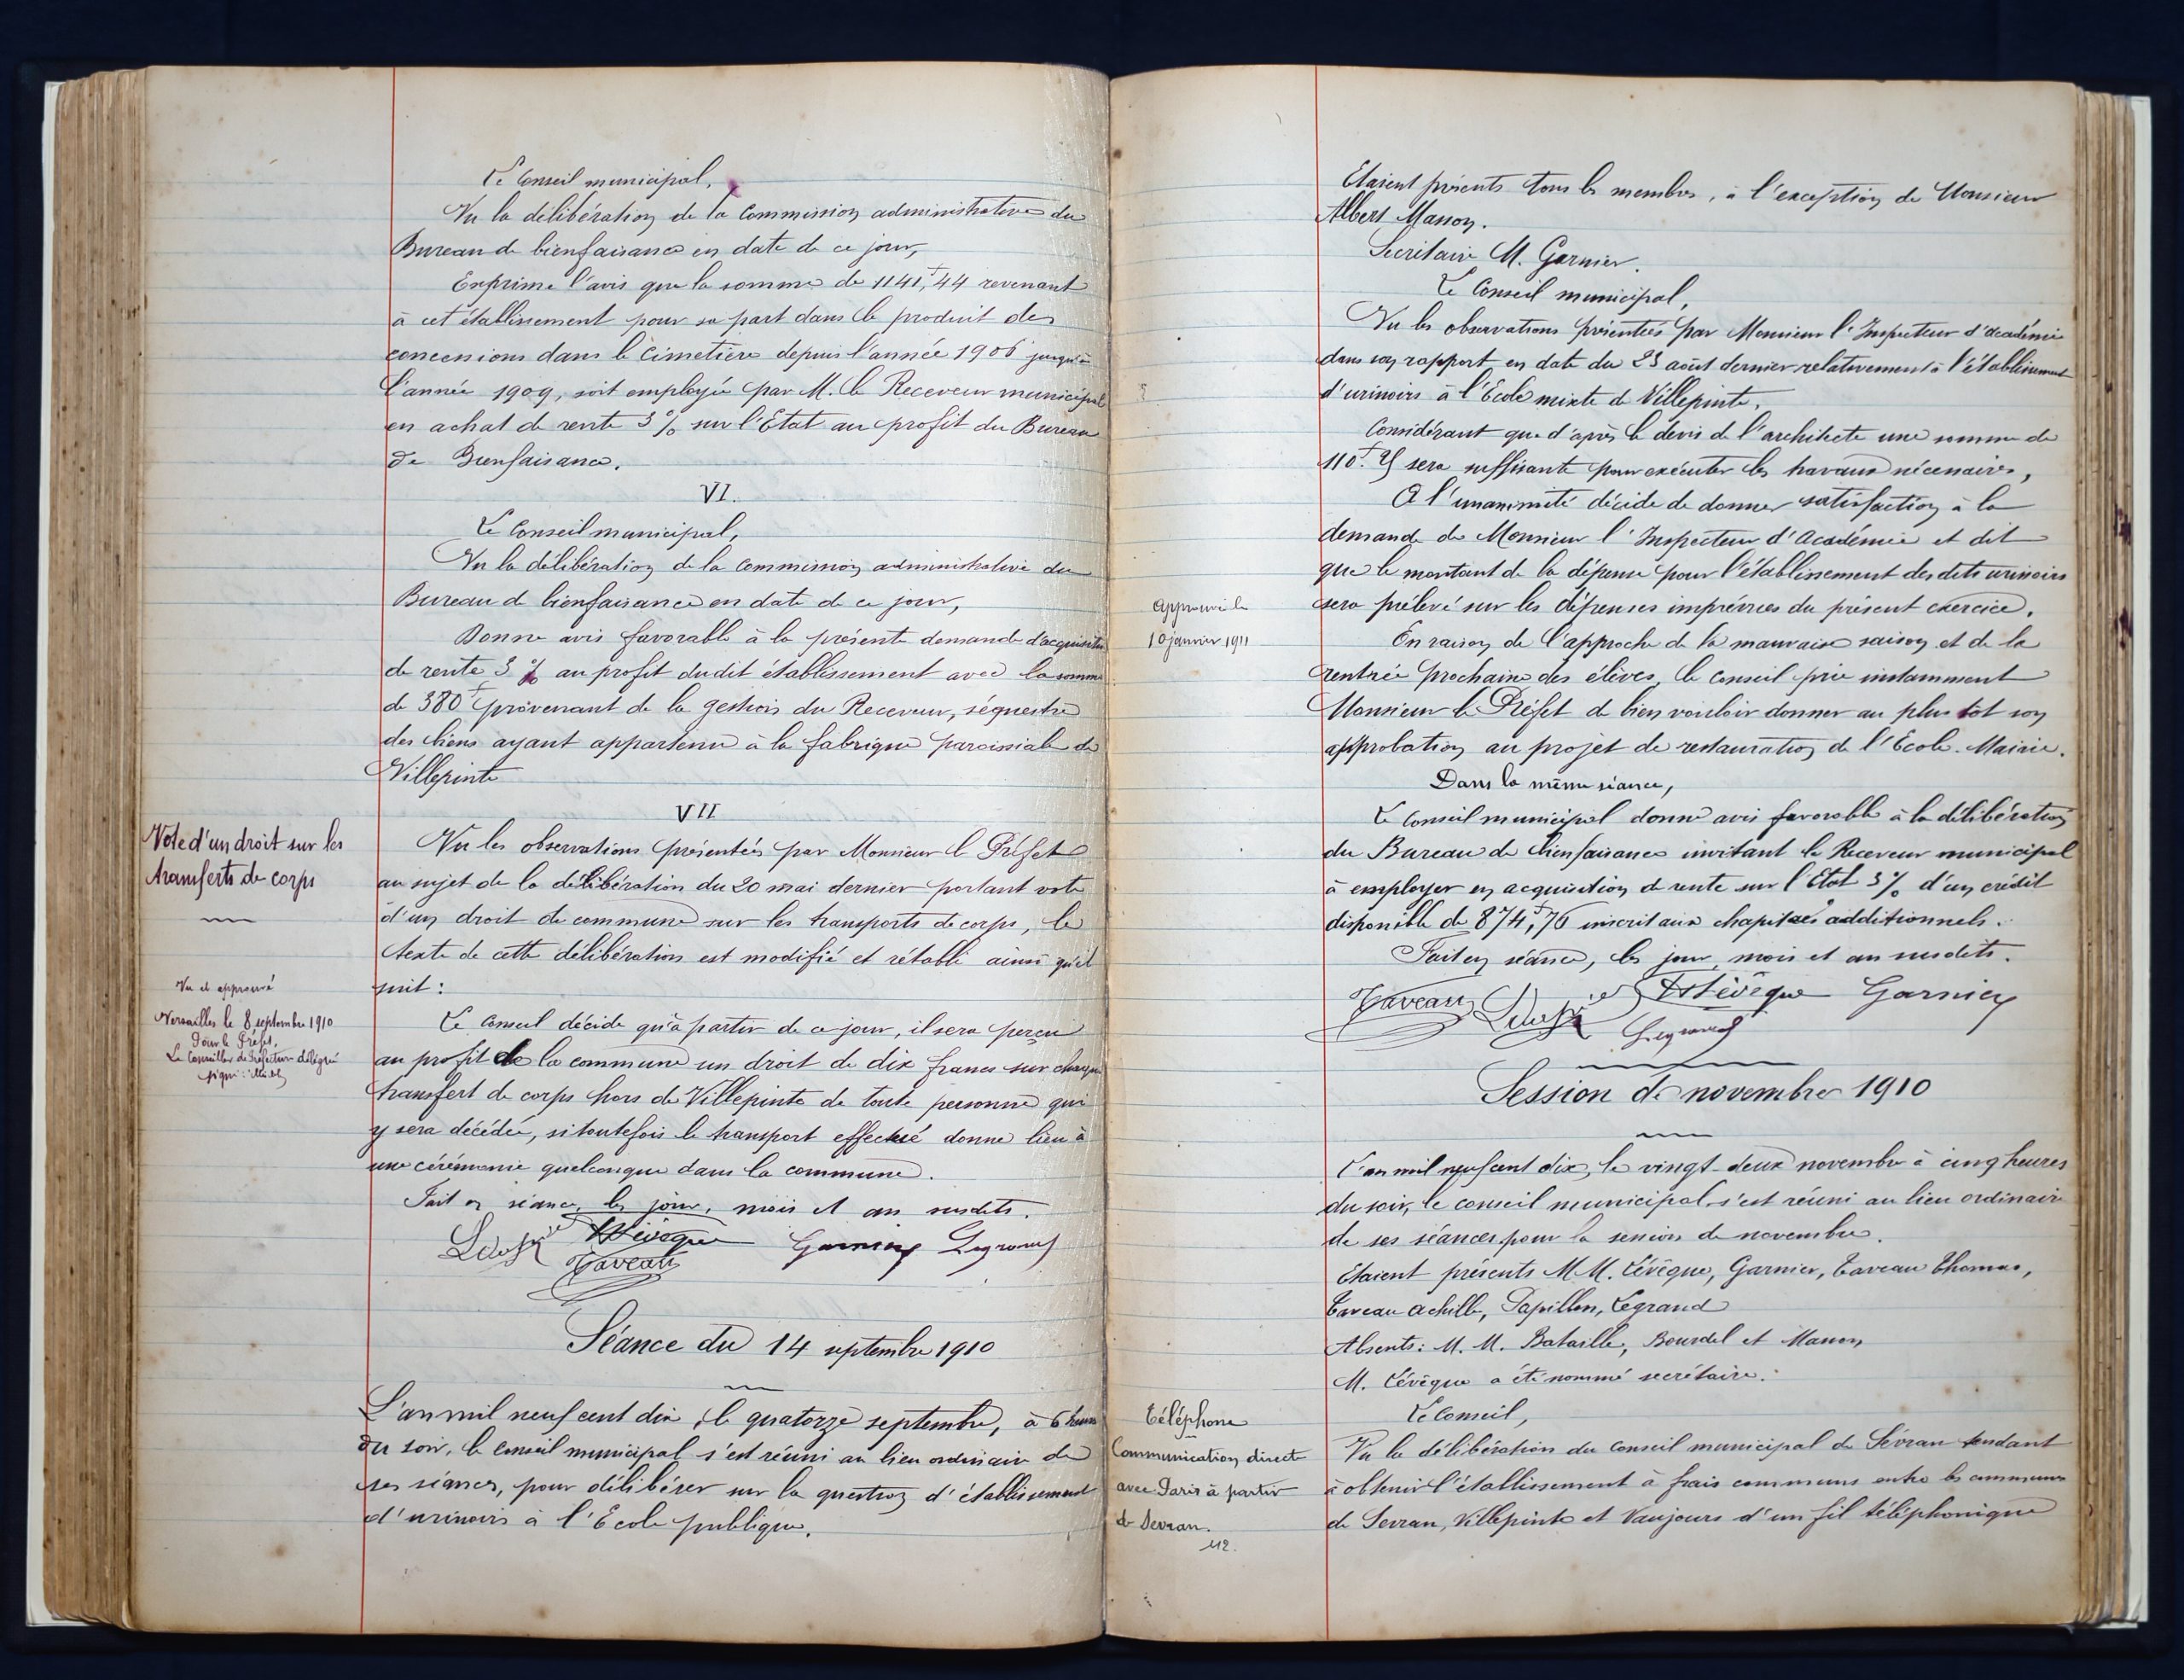 Le Conseil municipal,
Vu la délibération de la Commission administrative du
Bureau de bienfaisance en date de ce jour,
Exprime l'avis que la somme de 1141f,44 revenant
à cet établissement pour sa part dans le produit des
concessions dans le Cimetière depuis l'année 1906 jusqu'à
l'année 1909, soit employée par M. le Receveur municipal
en achat de rente 3 % sur l'Etat au profit du Bureau
de Bienfaisance.
VI.
Le Conseil municipal,
Vu la délibération de la commission administrative du
Bureau de bienfaisance en date de ce jour,
Donne avis favorable à la présente demande d'acquisition
de rente 3 % au profit dudit établissement avec la somme
de 380f provenant de la gestion du Receveur, séquestre
des biens ayant appartenu à la fabrique paroissiale de
Villepinte
VII
Vote d'un droit sur les
transferts de corps
Vu les observations présentées par Monsieur le Préfet
au sujet de la délibération du 20 mai dernier portant vote
d'un droit de commune sur les transports de corps, le
texte de cette délibération est modifié et rétabli ainsi qu'il
suit :
Vu et approuvé
Versailles le 8 septembre 1910
Pour le Préfet,
Le Conseiller de Préfecture délégué
signé :
Le Conseil décide qu'à partir de ce jour, il sera perçu
au profit de la commune un droit de dix francs sur chaque
transfert de corps hors de Villepinte de toute personne qui
y sera décédée, si toutefois le transport effectué donne lieu à
une cérémonie quelconque dans la commune.
Fait en séance, les jour, mois et an susdits.
Lévêque Garnier Legrand
Taveau
Séance du 14 septembre 1910
L'an mil neuf cent dix, le quatorze septembre, à 6 heures
du soir, le conseil municipal s'est réuni au lieu ordinaire de
ses séances, pour délibérer sur la question d'établissement
d'urinoirs à l'Ecole publique.
Etaient présents tous les membres, à l'exception de Monsieur
Albert Masson.
Secrétaire M. Garnier.
Le Conseil municipal,
Vu les observations présentées par Monsieur l'Inspecteur d'académie
dans son rapport en date du 23 août dernier relativement à l'établissement
d'urinoirs à l'Ecole mixte de Villepinte,
Considérant que d'après le devis de l'architecte une somme de
110f. sera suffisante pour exécuter les travaux nécessaires,
A l'unanimité décide de donner satisfaction à la
demande de Monsieur l'Inspecteur d'Académie et dit
que le montant de la dépense pour l'établissement des dits urinoirs
sera prélevé sur les dépenses imprévues du présent exercice.
Approuvé le
10 janvier 1911
En raison de l'approche de la mauvaise saison et de la
rentrée prochaine des élèves, le conseil prie instamment
Monsieur le Préfet de bien vouloir donner au plus tôt son
approbation au projet de restauration de l'Ecole-Mairie.
Dans la même séance,
Le Conseil municipal donne avis favorable à la délibération
du Bureau de bienfaisance invitant le Receveur municipal
à employer en acquisition de rente sur l'Etat 3 % d'un crédit
disponible de 874f,76 inscrit aux chapitres additionnels.
Fait en séance, les jour, mois et an susdits.
Taveau Lévêque Garnier
Legrand
Session de novembre 1910
L'an mil neuf cent dix, le vingt-deux novembre à cinq heures
du soir, le conseil municipal s'est réuni au lieu ordinaire
de ses séances pour la session de novembre.
Etaient présents M.M. Lévêque, Garnier, Taveau Thomas,
Taveau Achille, Papillon, Legrand
Absents : M. M. Bataille, Bourdel et Masson
M. Lévêque a été nommé secrétaire.
Téléphone
Communication directe
avec Paris à partir
de Sevran.
112.
Le Conseil,
Vu la délibération du Conseil municipal de Sévran tendant
à obtenir l'établissement à frais communs entre les communes
de Sevran, Villepinte et Vaujours d'un fil téléphonique